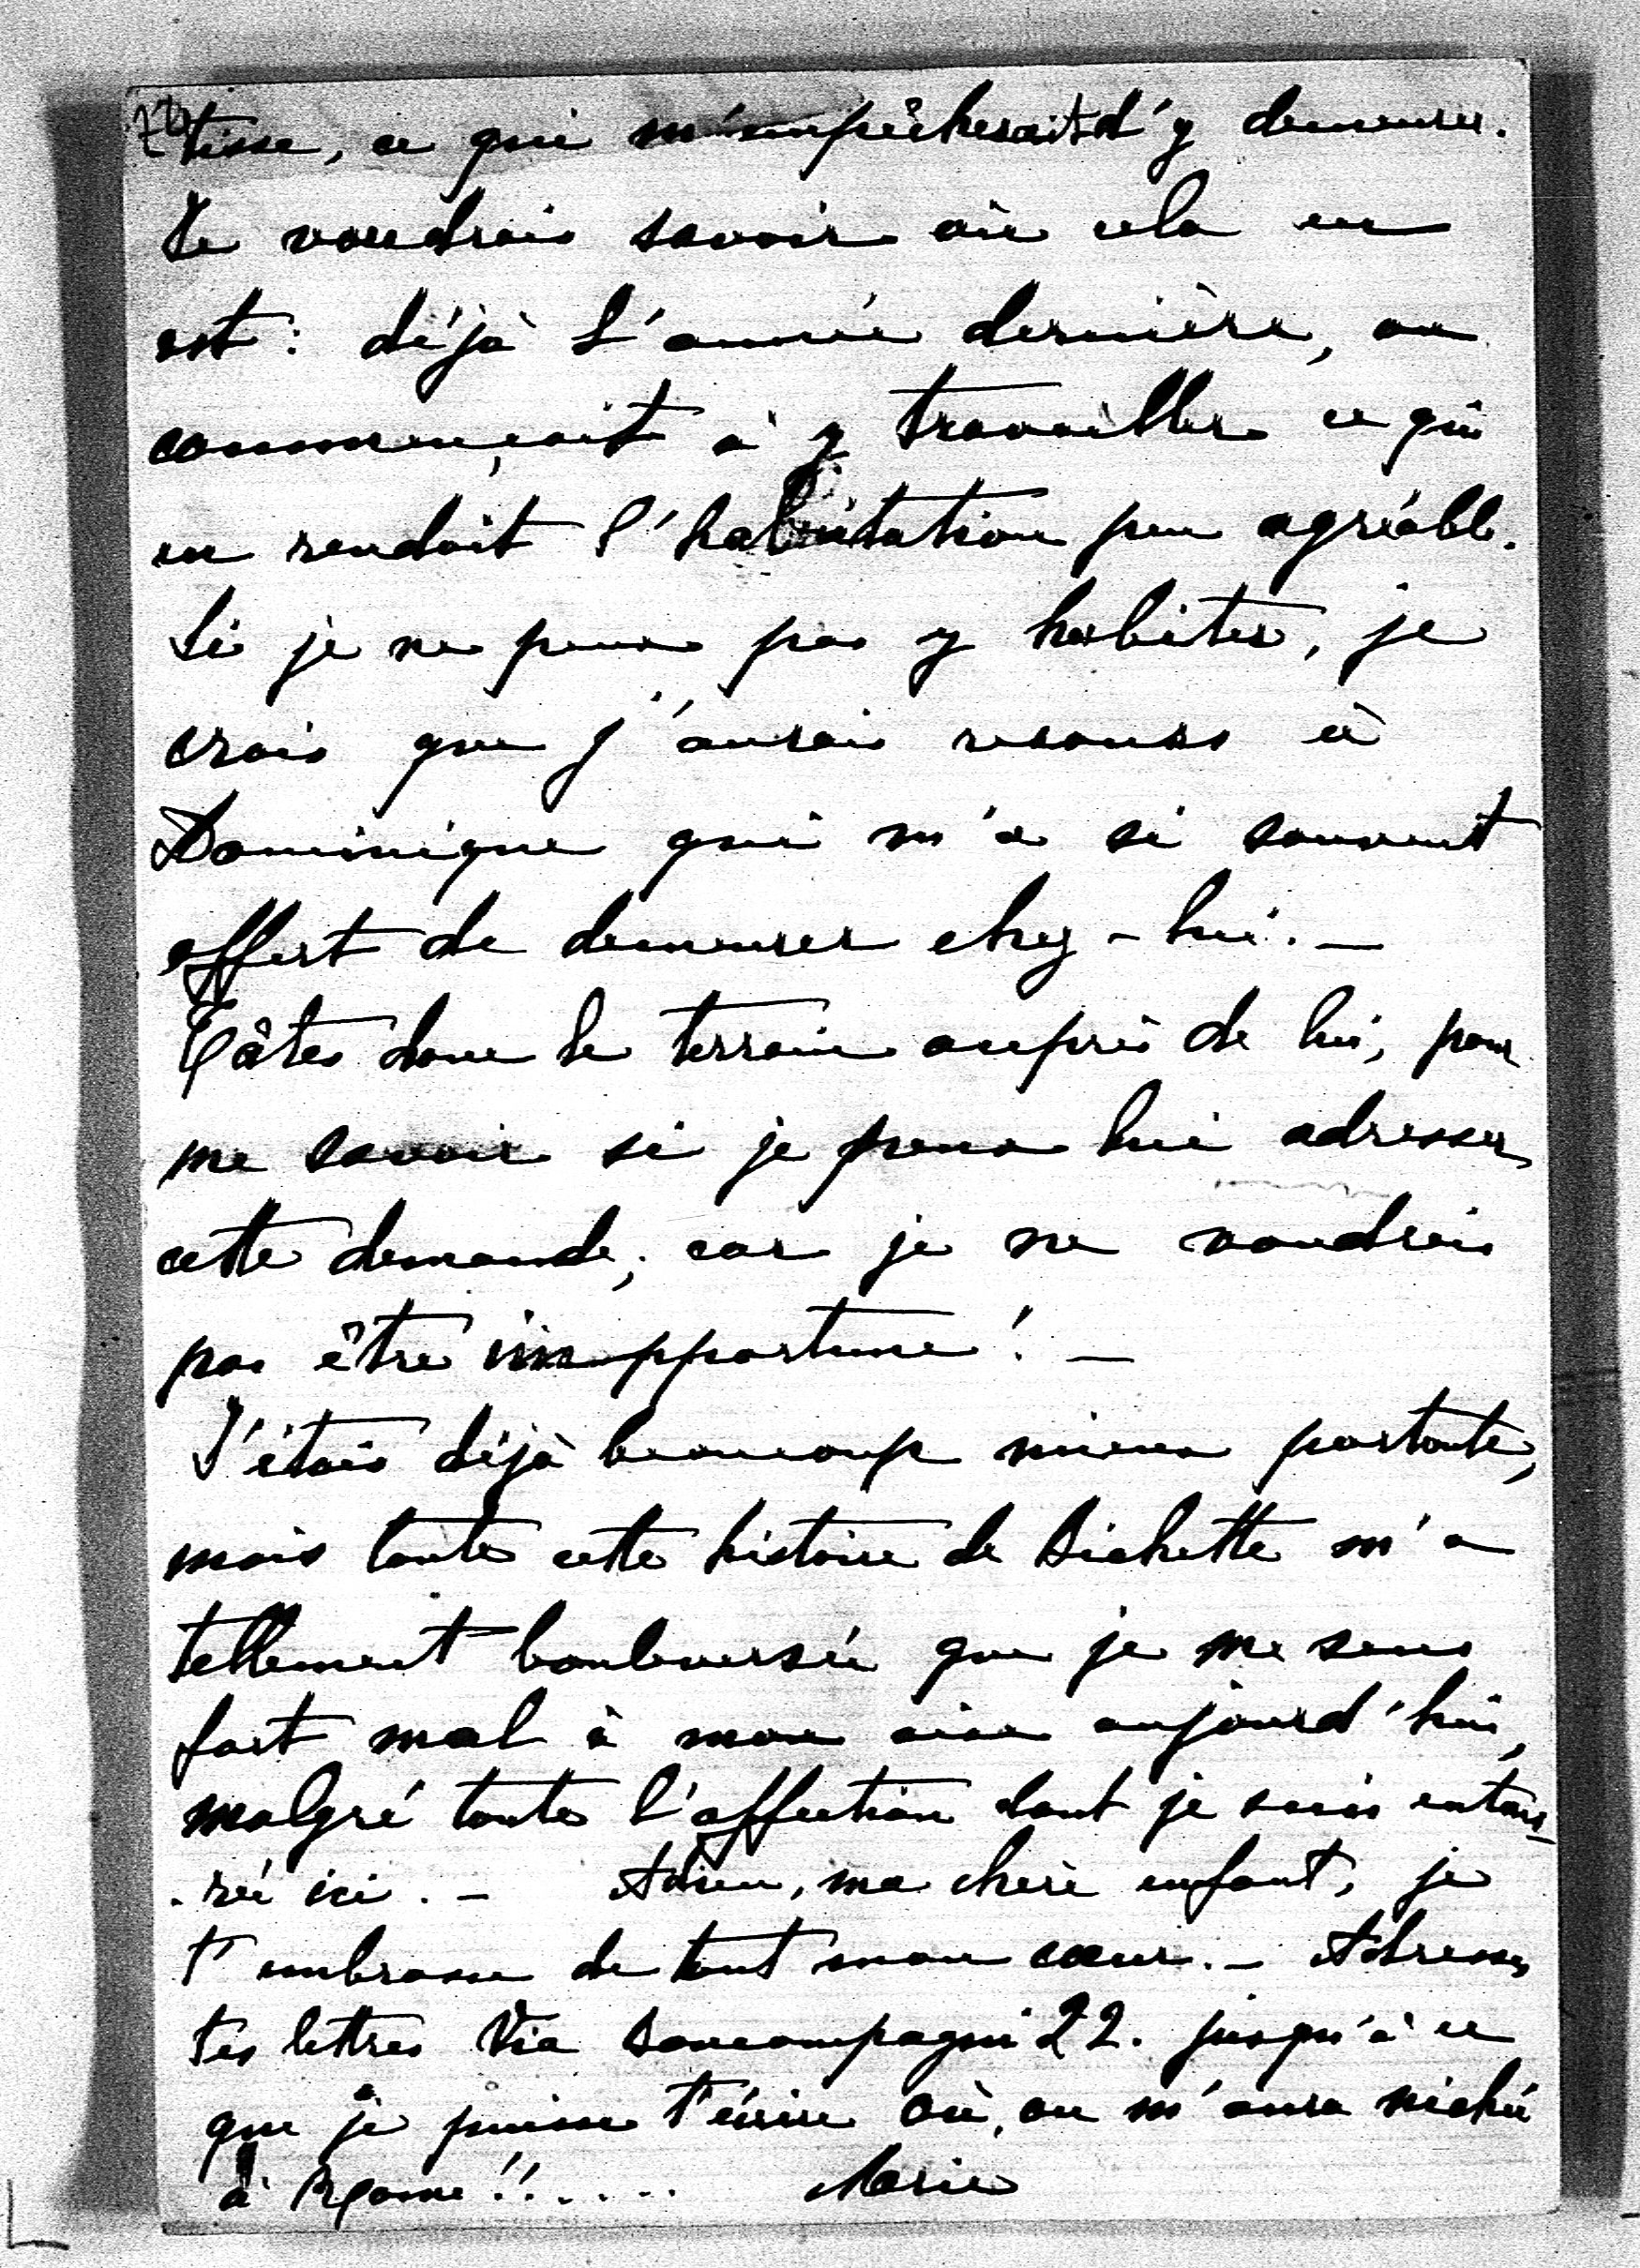 tisse, ce qui m'empêcherait d'y demeurer.
Je voudrais savoir où cela en
est : déjà l'année dernière, on
commençait à y travailler ce qui
en rendait l'habitation peu agréable.
Si je ne peux pas y habiter, je
crois que j'aurais recours à
Dominique qui m'a si souvent
offert de demeurer chez-lui. —
Tâtes donc le terrain auprès de lui, pour
me savoir si je peux lui adresser
cette demande, car je ne voudrais
pas être importune ! —
J'étais déjà beaucoup mieux portante,
mais toute cette histoire de Bichette m'a
tellement bouleversée que je me sens
fort mal à mon aise aujourd'hui,
malgré toute l'affection dont je suis entou-
-rée ici. — Adieu, ma chère enfant, je
t'embrasse de tout mon cœur. — Adresses
tes lettres Via Boncompagni 22. jusqu'à ce
que je puisse t'écrire où, on m'aura nichée
à Rome !! .....  Marie